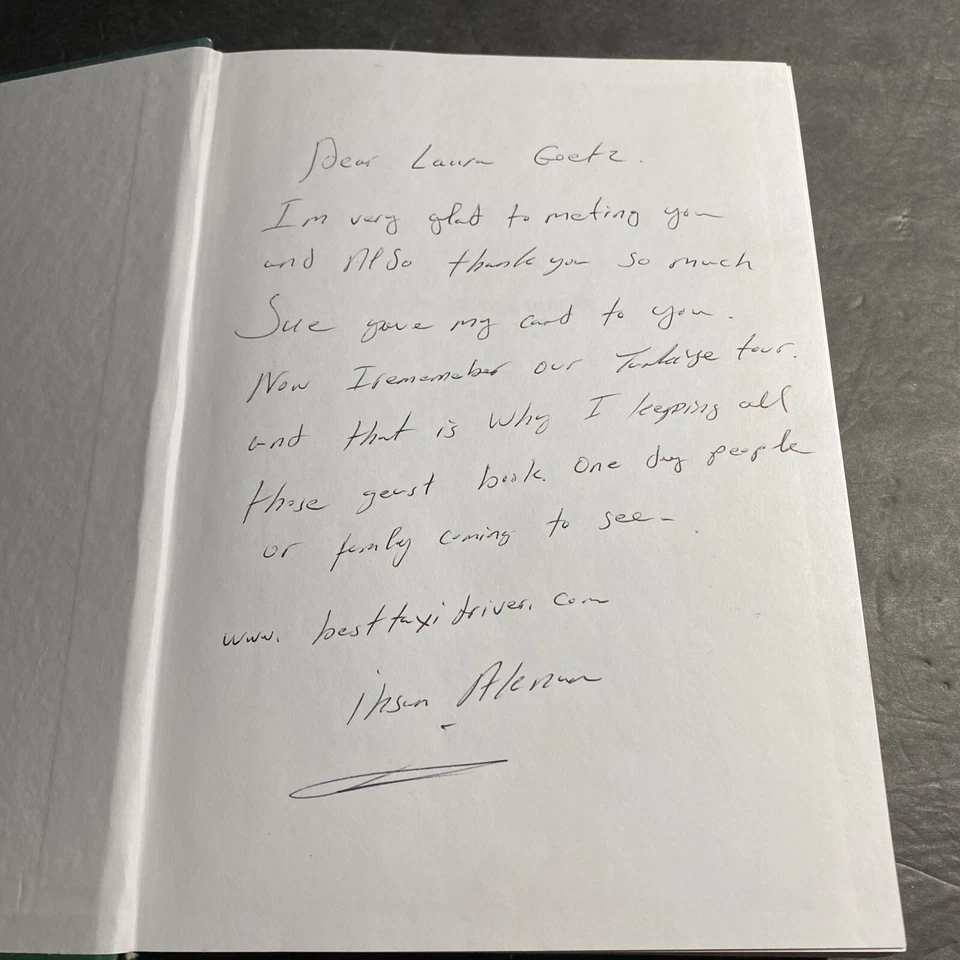 Dear Laura Goetz.
Im very glad to meting you
and Also thank you so much
Sue gave my card to you.
Now I rememeber our Turkiye tour.
and that is why I keeping all
those geust book. One day people
or family coming to see
www.besttaxidriver.com
ihsan Aknur